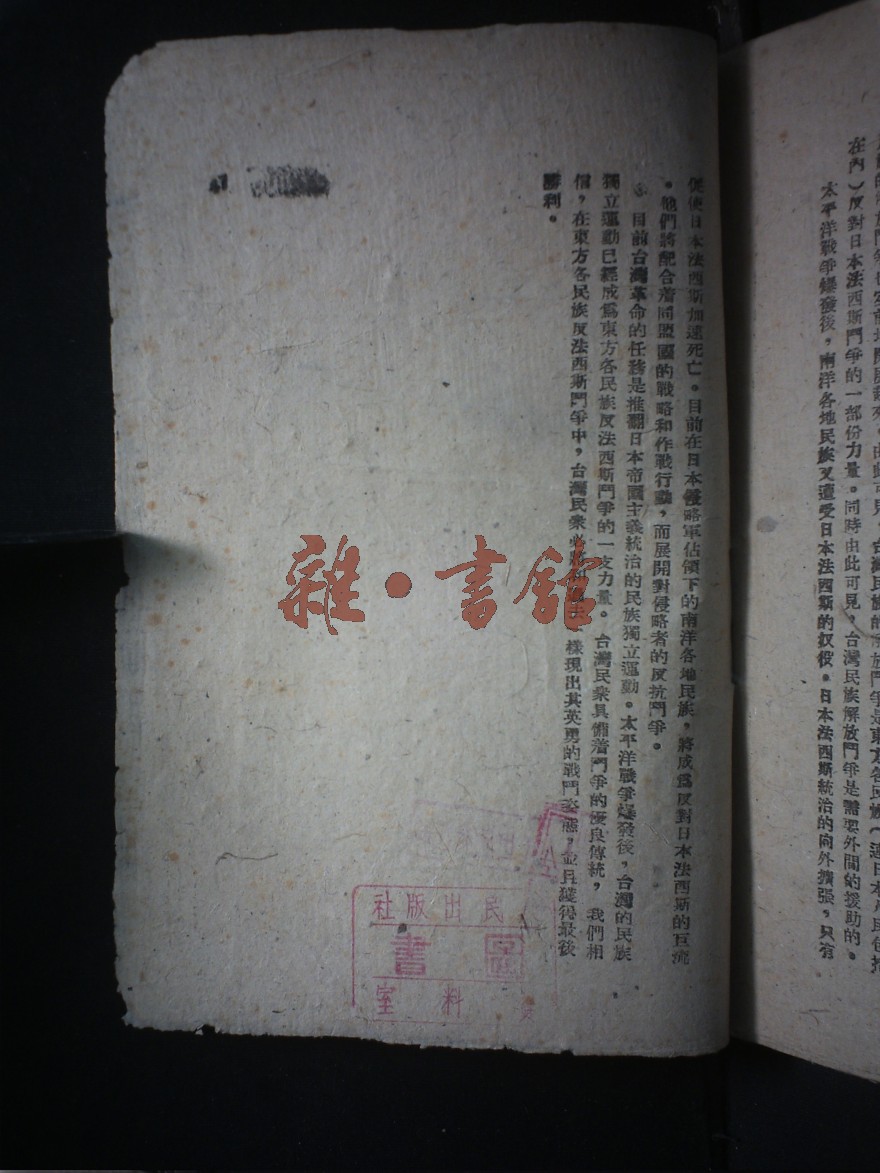 在內）反對日本法西斯鬥爭的一部份力量。同時由此可見，台灣民族解放鬥爭是需要外間的援助的。
太平洋戰爭爆發後，南洋各地民族又遭受日本法西斯的奴役。日本法西斯統治的向外擴張，只有
促使日本法西斯加速死亡。目前在日本侵略軍佔領下的南洋各地民族，將成爲反對日本法西斯的巨流
。他們將配合着同盟國的戰略和作戰行動，而展開對侵略者的反抗鬥爭。
目前台灣革命的任務是推翻日本帝國主義統治的民族獨立運動。太平洋戰爭爆發後，台灣的民族
獨立運動已經成爲東方各民族反法西斯鬥爭的一支力量。台灣民衆具備着鬥爭的優良傳統，我們相
信，在東方各民族反法西斯鬥爭中，台灣民衆必將和過去一樣現出其英勇的戰鬥姿態，並且獲得最後
勝利。
雜·書館
民出版社
圖書
料室